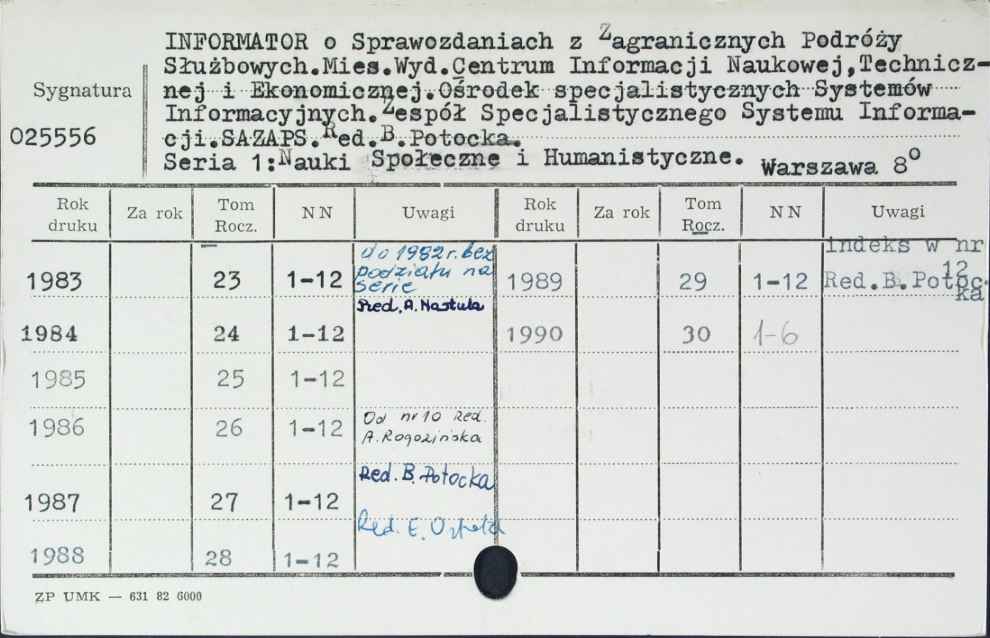 INFORMATOR o Sprawozdaniach z Zagranicznych Podróży
Służbowych.Mies.Wyd.Centrum Informacji Naukowej,Technicz-
nej i Ekonomicznej.Ośrodek specjalistycznych Systemów
Informacyjnych.Zespół Specjalistycznego Systemu Informa-
cji.SAZAPS.Red.B.Potocka.
Seria 1:Nauki Społeczne i Humanistyczne. Warszawa 8°
Sygnatura
025556
Rok druku Za rok Tom Rocz. NN Uwagi Rok druku Za rok Tom Rocz. NN Uwagi
1983 23 1-12 do 1982 r. bez podziału na serie Red. A. Nastuła 1989 29 1-12 indeks w nr 12 Red.B.Potocka
1984 24 1-12 1990 30 1-6
1985 25 1-12
1986 26 1-12 Od nr 10 Red. A. Rogozińska
1987 27 1-12 Red. B. Potocka
1988 28 1-12 Red. E.
ZP UMK — 631 82 6000